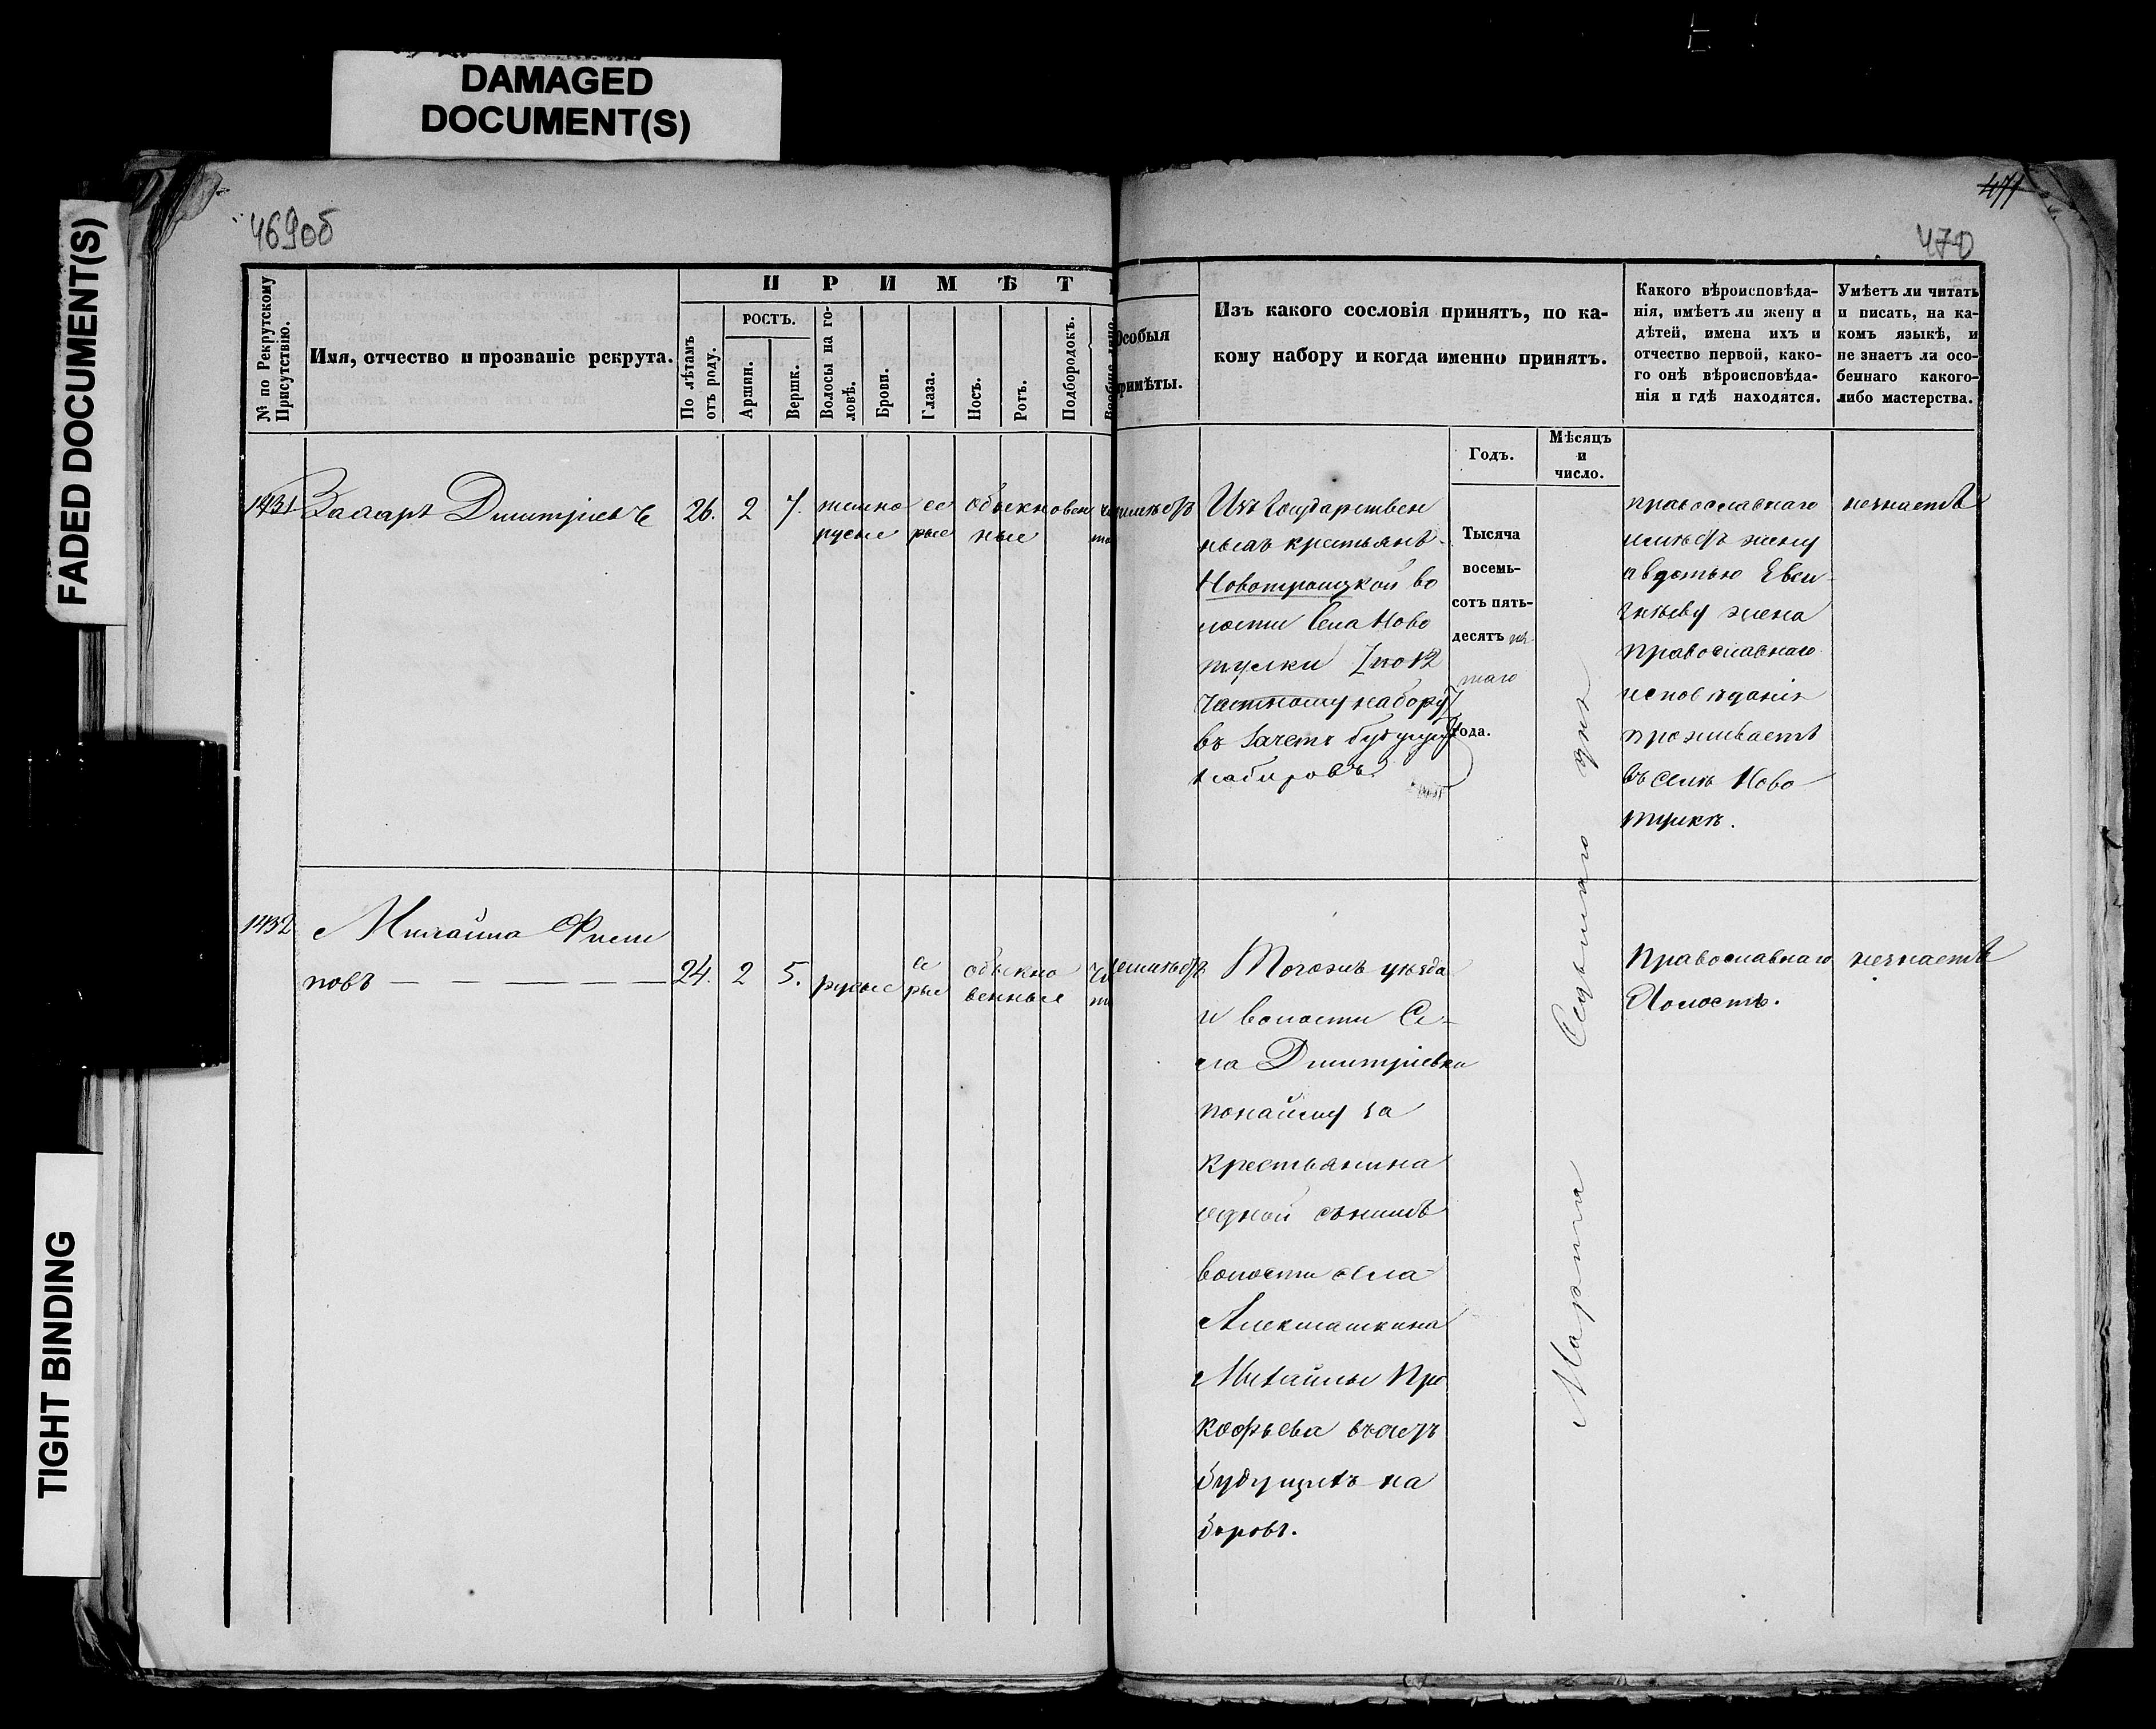 DAMAGED
DOCUMENT(S)
FADED DOCUMENT(S)
TIGHT BINDING
469об
471
470
№ по Рекрутскому
Присутствію.
Имя, отчество и прозваніе рекрута.
П Р И М Ѣ Т
По лѣтамъ
отъ роду.
РОСТЪ.
Аршин.
Вершк.
Волосы на го-
ловѣ.
Брови.
Глаза.
Носъ.
Ротъ.
Подбородокъ.
Особыя
примѣты.
Изъ какого сословія принятъ, по ка-
кому набору и когда именно принятъ.
Годъ.
Мѣсяцъ
и
число.
Какого вѣроисповѣда-
нія, имѣетъ ли жену и
дѣтей, имена ихъ и
отчество первой, како-
го онѣ вѣроисповѣда-
нія и гдѣ находятся.
Умѣетъ ли читать
и писать, на ка-
комъ языкѣ, и
не знаетъ ли осо-
беннаго какого-
либо мастерства.
1431
Захаръ Дмитріевъ
26. 2 7.
темно
русые
се
рые
обыкновен
ные
Изъ Государствен
ныхъ крестьянъ
Новотроицкой во
лости Села Ново
тулки по 12
частному набору
въ Зачетъ будущихъ
наборовъ
Тысяча
восемь-
сотъ пять-
десятъ пя-
таго
года.
Седьмаго дня
Марта
православнаго
имѣетъ жену
авдотью Евси-
гнѣеву жена
православнаго
исповѣданія
проживаетъ
въ селѣ Ново
тулкѣ.
незнаетъ
1432
Михайла Фили
повъ
24. 2 5.
русые
се
рые
обыкно
венные
Тогожъ уѣзда
и волости Се-
ла Дмитріевки
понайму за
крестьянина
одной снимъ
волости села
Алексашкина
Михайлы Про
кофьева взачетъ
будущихъ на
боровъ.
Православнаго
Холостъ.
незнаетъ